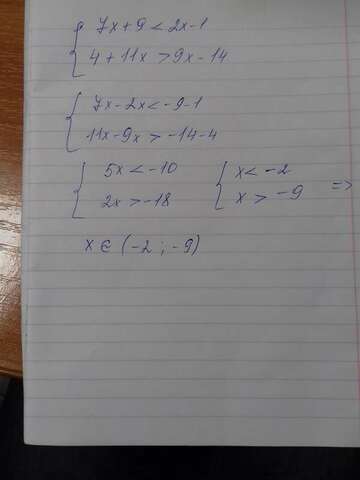 { 7x + 9 < 2x - 1
4 + 11x > 9x - 14
{ 7x - 2x < -9 - 1
11x - 9x > -14 - 4
{ 5x < -10 { x < -2
2x > -18 x > -9 =>
x ∈ (-2 ; -9)